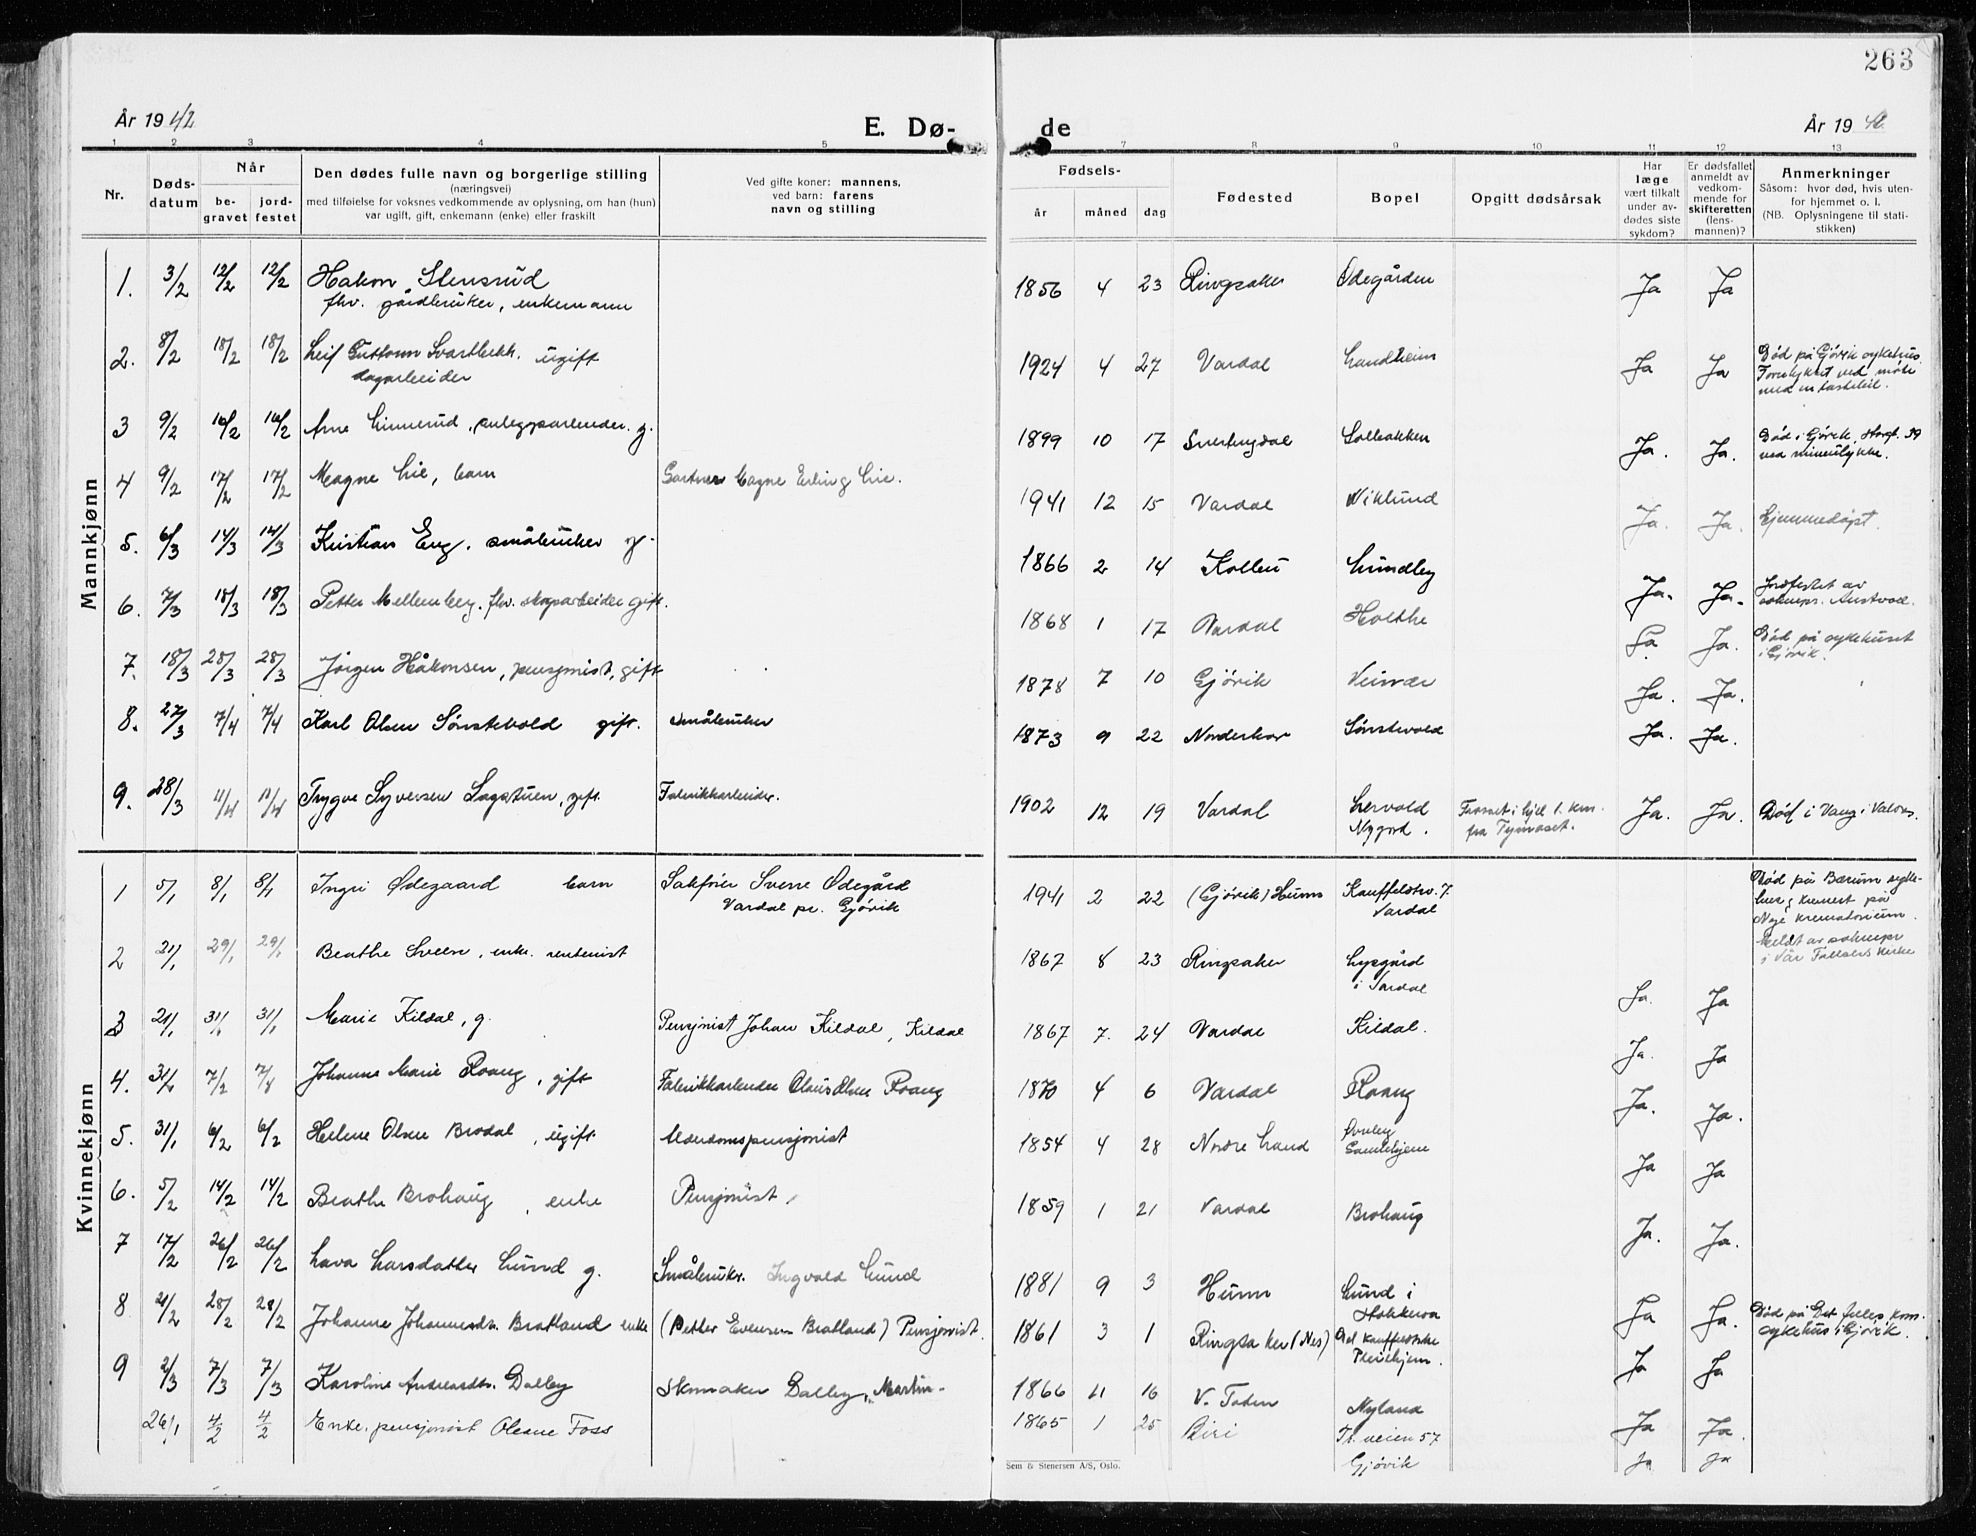 263
År 19 42
E. Dø-
de
År 19 42
1 2 3 4 5 7 8 9 10 11 12 13
Nr.
Døds-
datum
Når
be-
gravet
jord-
festet
Den dødes fulle navn og borgerlige stilling
(næringsvei)
med tilføielse for voksnes vedkommende av oplysning, om han (hun)
var ugift, gift, enkemann (enke) eller fraskilt
Ved gifte koner: mannens,
ved barn: farens
navn og stilling
Fødsels-
år måned dag
Fødested
Bopel
Opgitt dødsårsak
Har
læge
vært tilkalt
under av-
dødes siste
sykdom?
Er dødsfallet
anmeldt av
vedkom-
mende for
skifteretten
(lens-
mannen)?
Anmerkninger
Såsom: hvor død, hvis uten-
for hjemmet o. l.
(NB. Oplysningene til stati-
stikken)
Mannkjønn
1. 3/2 12/2 12/2 Hakon Stensrud 1856 4 23 Ringsaker Ødegården Ja Ja
fhv. gårdbruker, enkemann
2. 8/2 18/2 18/2 Leif Guttorm Svartbekk. ugift 1924 4 27 Vardal Landheim Ja Ja Død på Gjøvik sykehus
dagarbeider
Forulykket ved møte
med en lastebil.
3 9/2 16/2 16/2 Arne Linnerud, anleggsarbeider. g. 1899 10 17 Snertingdal Solbakken Ja. Ja. Død i Gjøvik, 39
ved mineulykke.
4 9/2 17/2 17/2 Magne Lie, barn Gartner Magne Erling Lie. 1941 12 15 Vardal Wiklund Ja. Ja. Hjemmedøpt.
5. 6/3 14/3 14/3 Kristian Eng. småbruker g. 1866 2 14 Kolbu Lundby Ja. Ja. Jordfestet av
soknepr. Austvoll.
6. 7/3 18/3 18/3 Petter Mellemberg. fhv. skogsarbeider gift. 1868 1 17 Vardal Holthe Ja Ja. Død på sykehuset
i Gjøvik.
7. 18/3 28/3 28/3 Jørgen Håkonsen, pensjonist, gift 1878 7 10 Gjøvik Ja. Ja.
8. 27/3 7/4 7/4 Karl Olsen Sønstebold gift. småbruker 1873 9 22 Norderhov Sønstevold Ja. Ja.
9. 28/3 11/4 11/4 Trygve Syversen Sagstuen, gift. Fabrikkarbeider. 1902 12 19 Vardal Lervold Frosset i hjel 1. km. Ja. Ja. Død i Vang i Valdres.
Nygård. fra Tyinoset.
Kvinnekjønn
1 5/1 8/1 8/1 Ingri Ødegaard barn Sakfører Sverre Ødegård 1941 2 22 (Gjøvik) Hunns Kauffeldtsv. 7. Død på Bærum syke-
Vardal pr. Gjøvik Vardal
hus, kremert på
Nye krematorium.
Meldt av soknepr
i Vår Frelsers kirke
2 21/1 29/1 29/1 Beathe Sveen, enke. rentenist 1867 8 23 Ringsaker Lysgård Ja. Ja
i Vardal
3 21/1 31/1 31/1 Marie Kildal, g. Pensjonist Johan Kildal, Kildal 1867 7. 24 Vardal Kildal. Ja. Ja
4. 31/1 7/2 7/2 Johanne Marie Roang, gift Fabrikkarbeider Olaus Olsen Roang 1870 4 6 Vardal Roang Ja. Ja.
5. 31/1 6/2 6/2 Helene Olsen Brodal, ugift Alderdomspensjonist 1854 4 28 Nordre Land Øverby Ja Ja
Gamlehjem
6. 5/2 14/2 14/2 Beathe Brohaug, enke Pensjonist, 1859 1 21 Vardal Brohaug Ja. Ja.
7 17/2 26/2 26/2 Lava Larsdatter Lund g. Småbrukr. Ingvald Lund 1881 9 3 Hunn Lund i Ja Ja.
8 21/2 28/2 28/2 Johanne Johannesdtr. Bratland enke (Petter Evensen Bratland) Pensjonist. 1861 3 1 Ringsaker (Nes) Ad. Kauffeldtske Ja Ja Død på Det felles kom.
Pleiehjem.
sykehus i Gjøvik.
9 2/3 7/3 7/3 Karoline Andreasdtr. Dalby Skomaker Dalby, Martin. 1866 11 16 V. Toten Nyland Ja Ja.
26/1 4/2 4/2 Enke, pensjonist Oleane Foss 1865 1 25 Biri Tr. veien 57 Ja Ja
Gjøvik
Sem & Stenersen A/S, Oslo.